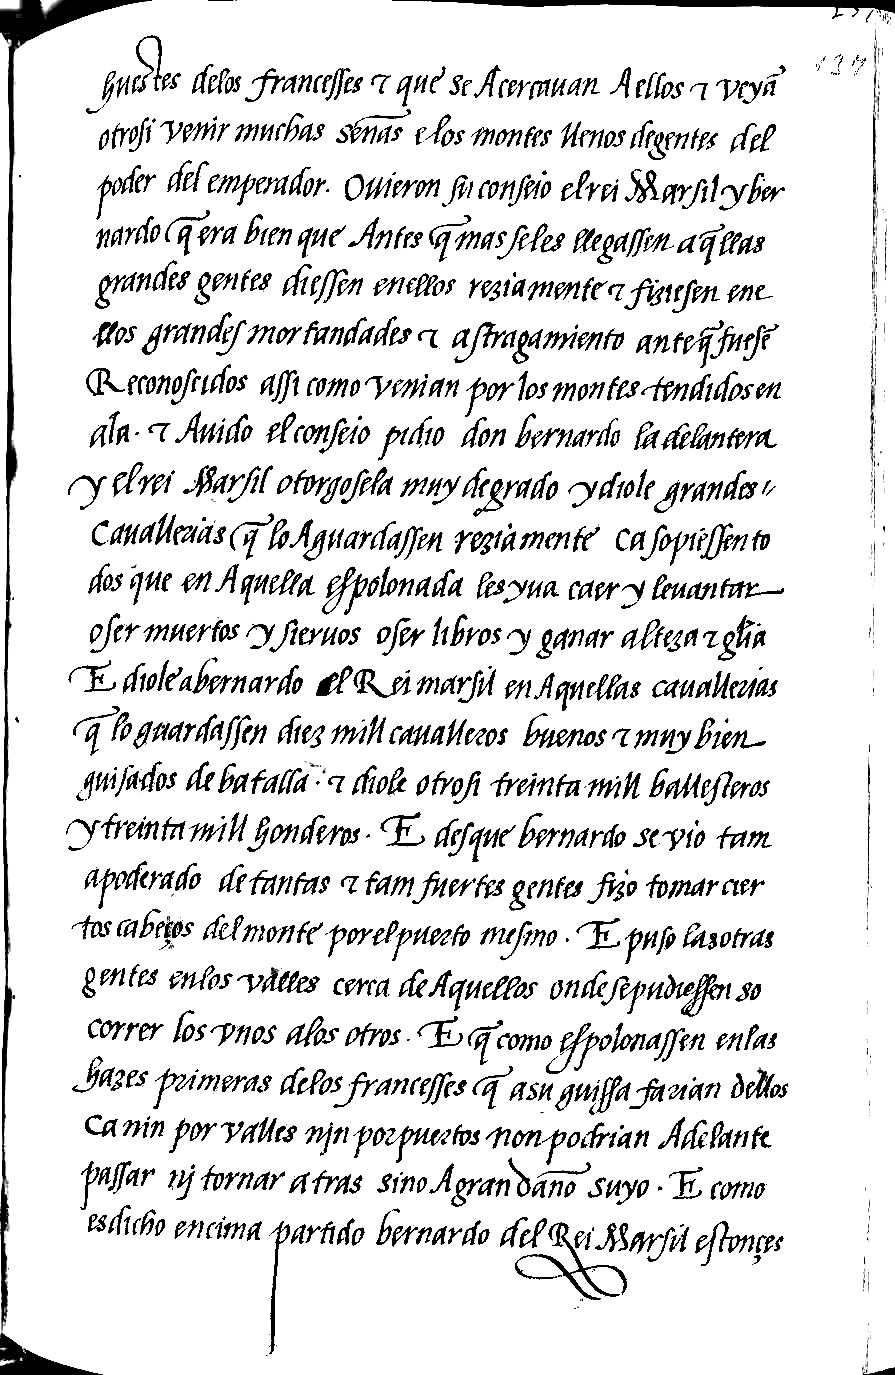 137
huestes delos francesses τ que se Acercauan Aellos τ veyã
otrosi venir muchas señas elos montes llenos degentes del
poder del emperador. Ouieron su conseio el rei Marsil y ber
nardo q̃ era bien que Antes q̃ mas seles llegassen aq̃llas
grandes gentes diessen enellos reziamente τ fiziesen ene
llos grandes mortandades τ astragamiento ante q̃ fuesẽ
Reconoscidos assi como venian por los montes tendidos en
ala. τ Auido el conseio pidio don bernardo la delantera
y el rei Marsil otorgosela muy degrado y diole grandes
Cauallerias q̃ lo Aguardassen reziamente Ca sopiessen to
dos que en Aquella espolonada les yua caer y leuantar
o ser muertos y sieruos o ser libros y ganar alteza τ gl̃ia
E diole abernardo el Rei marsil en Aquellas cauallerias
q̃ lo guardassen diez mill caualleros buenos τ muy bien
guisados de batalla. τ diole otrosi treinta mill ballesteros
y treinta mill honderos. E desque bernardo se vio tam
apoderado de tantas τ tam fuertes gentes fizo tomar cier
tos cabeços del monte por el puerto mesmo. E puso las otras
gentes en los valles cerca de Aquellos onde se pudiessen so
correr los vnos alos otros. E q̃ como espolonassen en las
hazes primeras delos francesses q̃ a su guissa farian dellos
Ca nin por valles nin por puertos non podrian Adelante
passar nj tornar atras sino A gran daño suyo. E como
es dicho encima partido bernardo del Rei Marsil estonçes